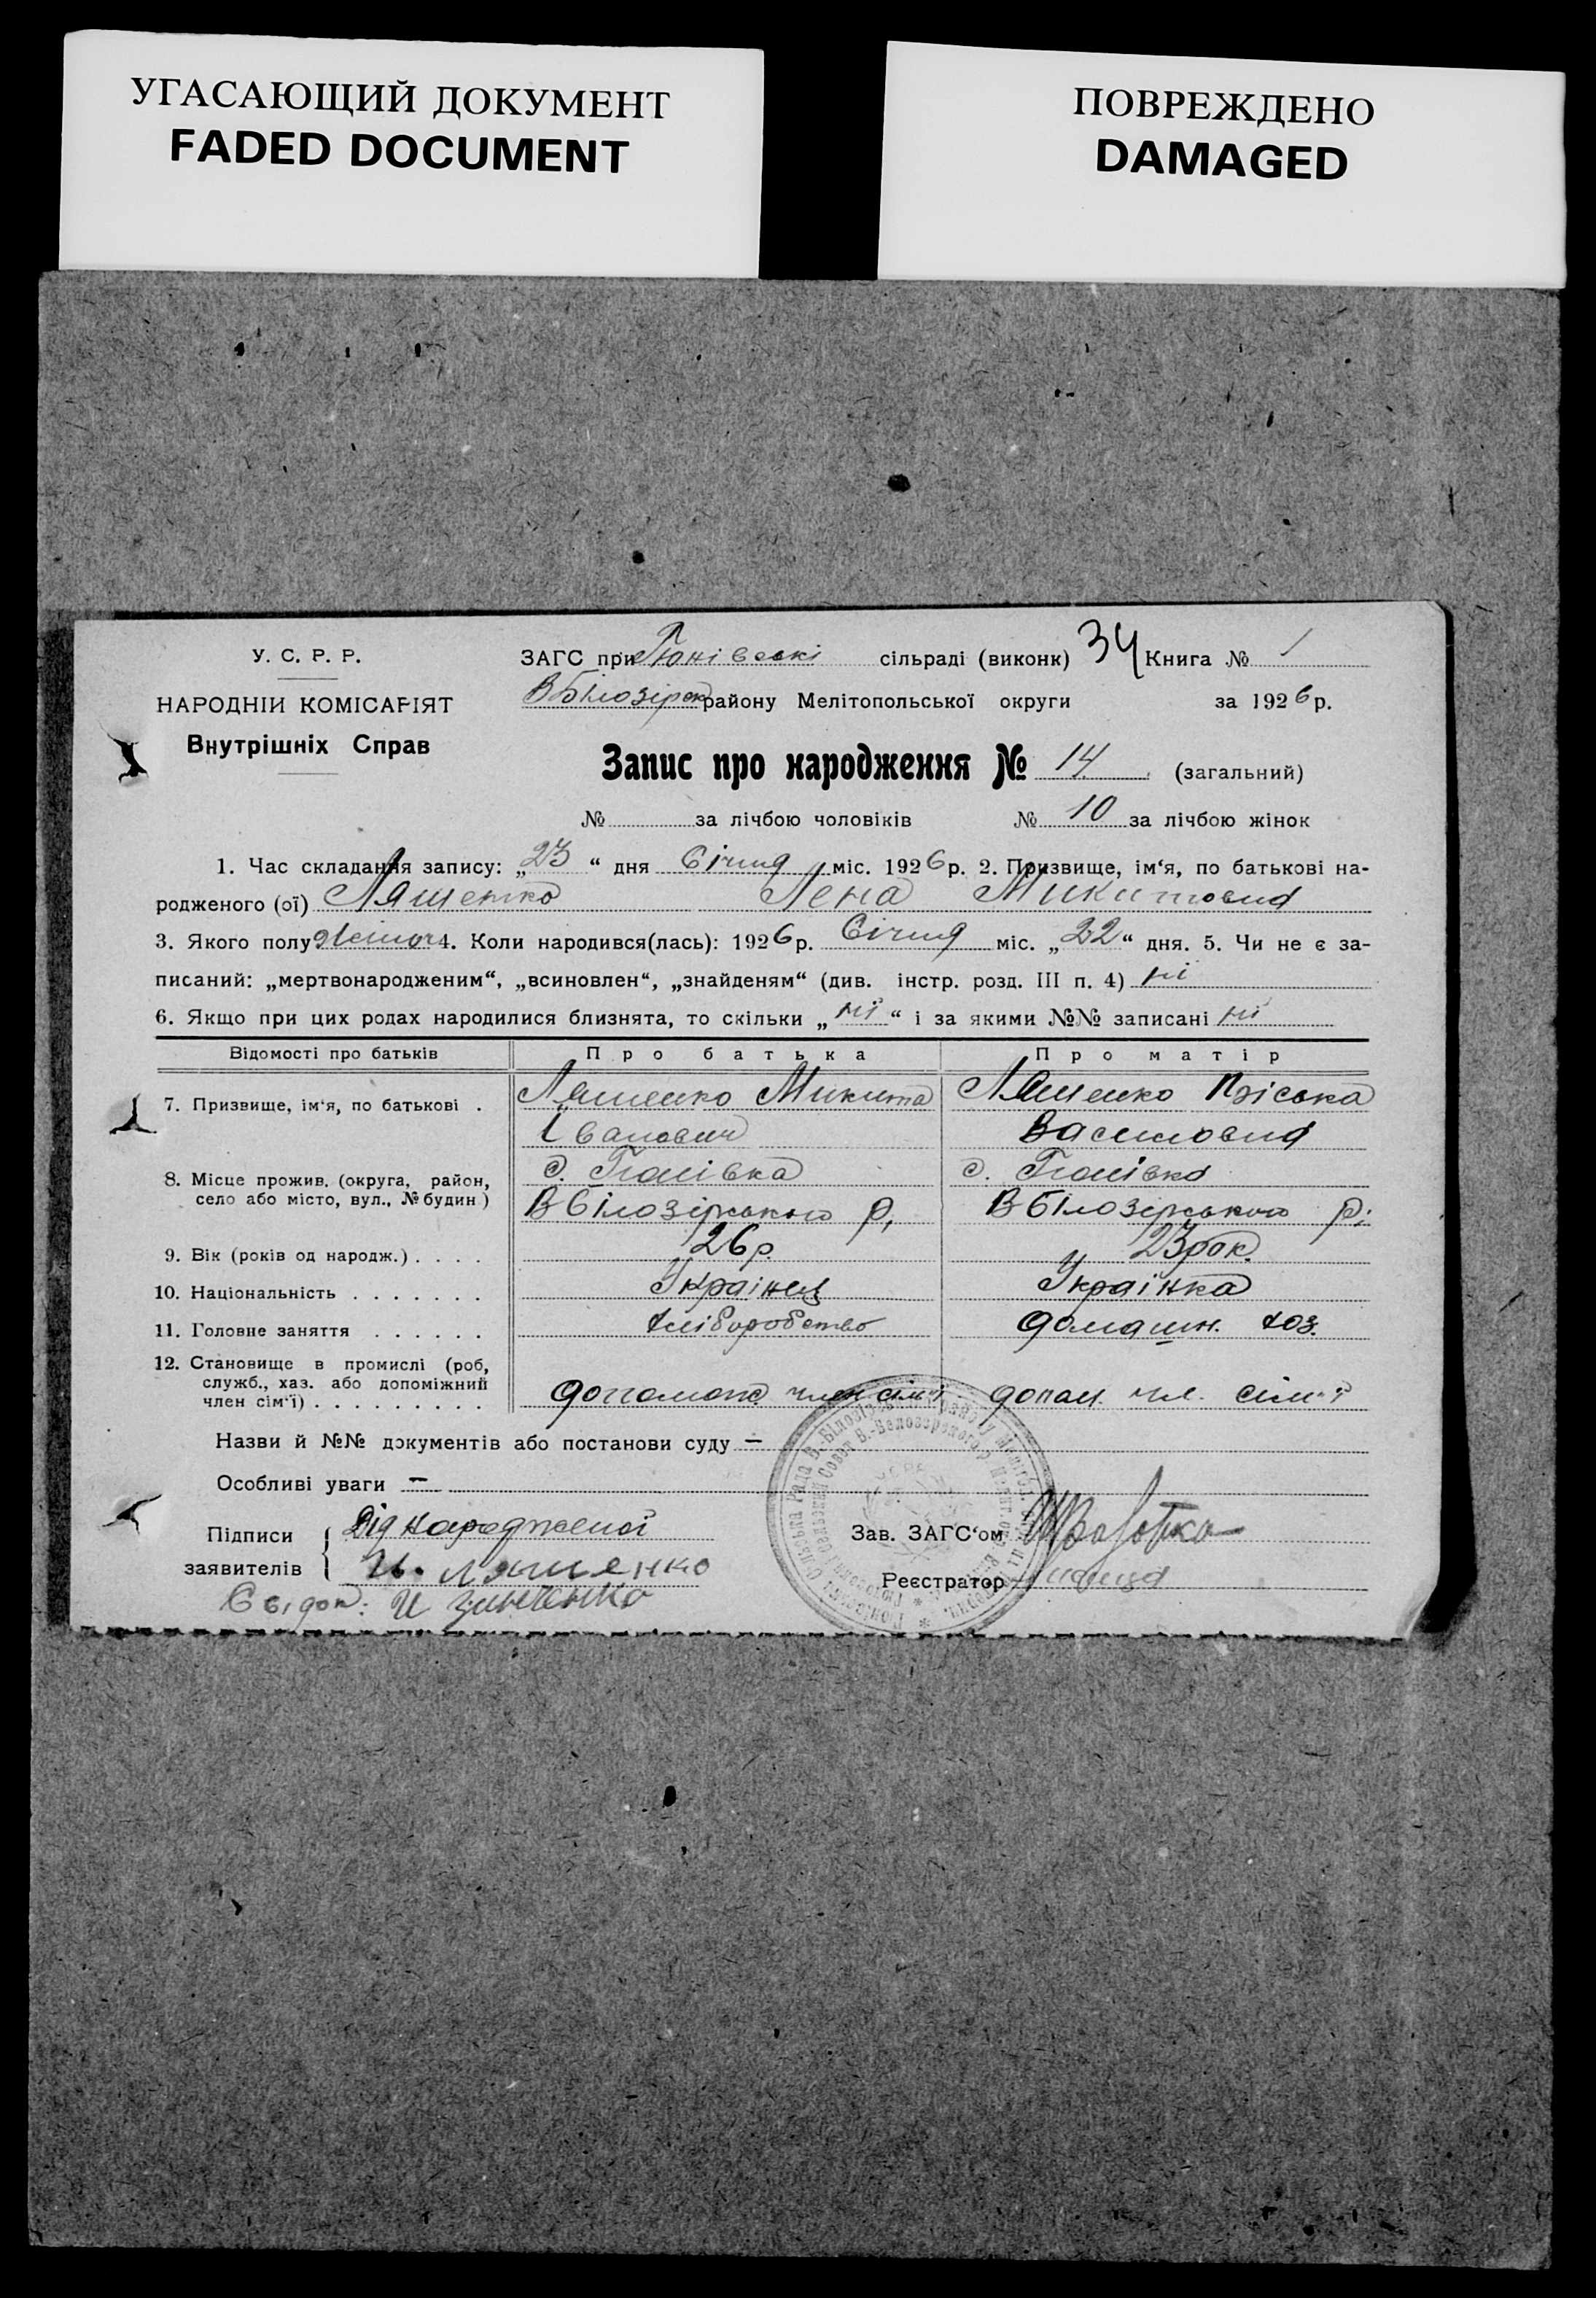 УГАСАЮЩИЙ ДОКУМЕНТ
FADED DOCUMENT
ПОВРЕЖДЕНО
DAMAGED
У. С. Р. Р.
НАРОДНІЙ КОМІСАРІЯТ
Внутрішніх Справ
ЗАГС при Гюнівські сільраді (виконк) 34 Книга № 1
В Білозірск району Мелітопольської округи за 1926 р.
Запис про народження № 14 (загальний)
№ за лічбою чоловіків № 10 за лічбою жінок
1. Час складання запису: „23“ дня Січня міс. 1926 р. 2. Призвище, ім‘я, по батькові на-
родженого (ої) Ляшенко Лена Микитовна
3. Якого полу жіноч 4. Коли народився(лась): 1926 р. Січня міс. „22“ дня. 5. Чи не є за-
писаний: „мертвонародженим“, „всиновлен“, „знайденям“ (див. інстр. розд. III п. 4) ні
6. Якщо при цих родах народилися близнята, то скільки „ні“ і за якими №№ записані ні
Відомості про батьків Про батька Про матір
7. Призвище, ім‘я, по батькові . Ляшенко Микита Ляшенко Пріська
Іванович Василовна
8. Місце прожив. (округа, район, с. Гюнівка с. Гюнівка
село або місто, вул., № будин) В Білозірського р. В Білозірського р.
9. Вік (років од народж.) . . . . 26 р. 23 рок.
10. Національність . . . . . . . Українец Українка
11. Головне заняття . . . . . . хліборобство домашн. хоз.
12. Становище в промислі (роб,
служб., хаз. або допоміжний
член сім‘ї) . . . . . . . . . допомож член сім'ї допом. чл. сім'ї
Назви й №№ документів або постанови суду —
Особливі уваги —
Підписи Дід народженої
заявителів И. Ляшенко
Свідок: И Зинченко
Зав. ЗАГС‘ом
Реєстратор